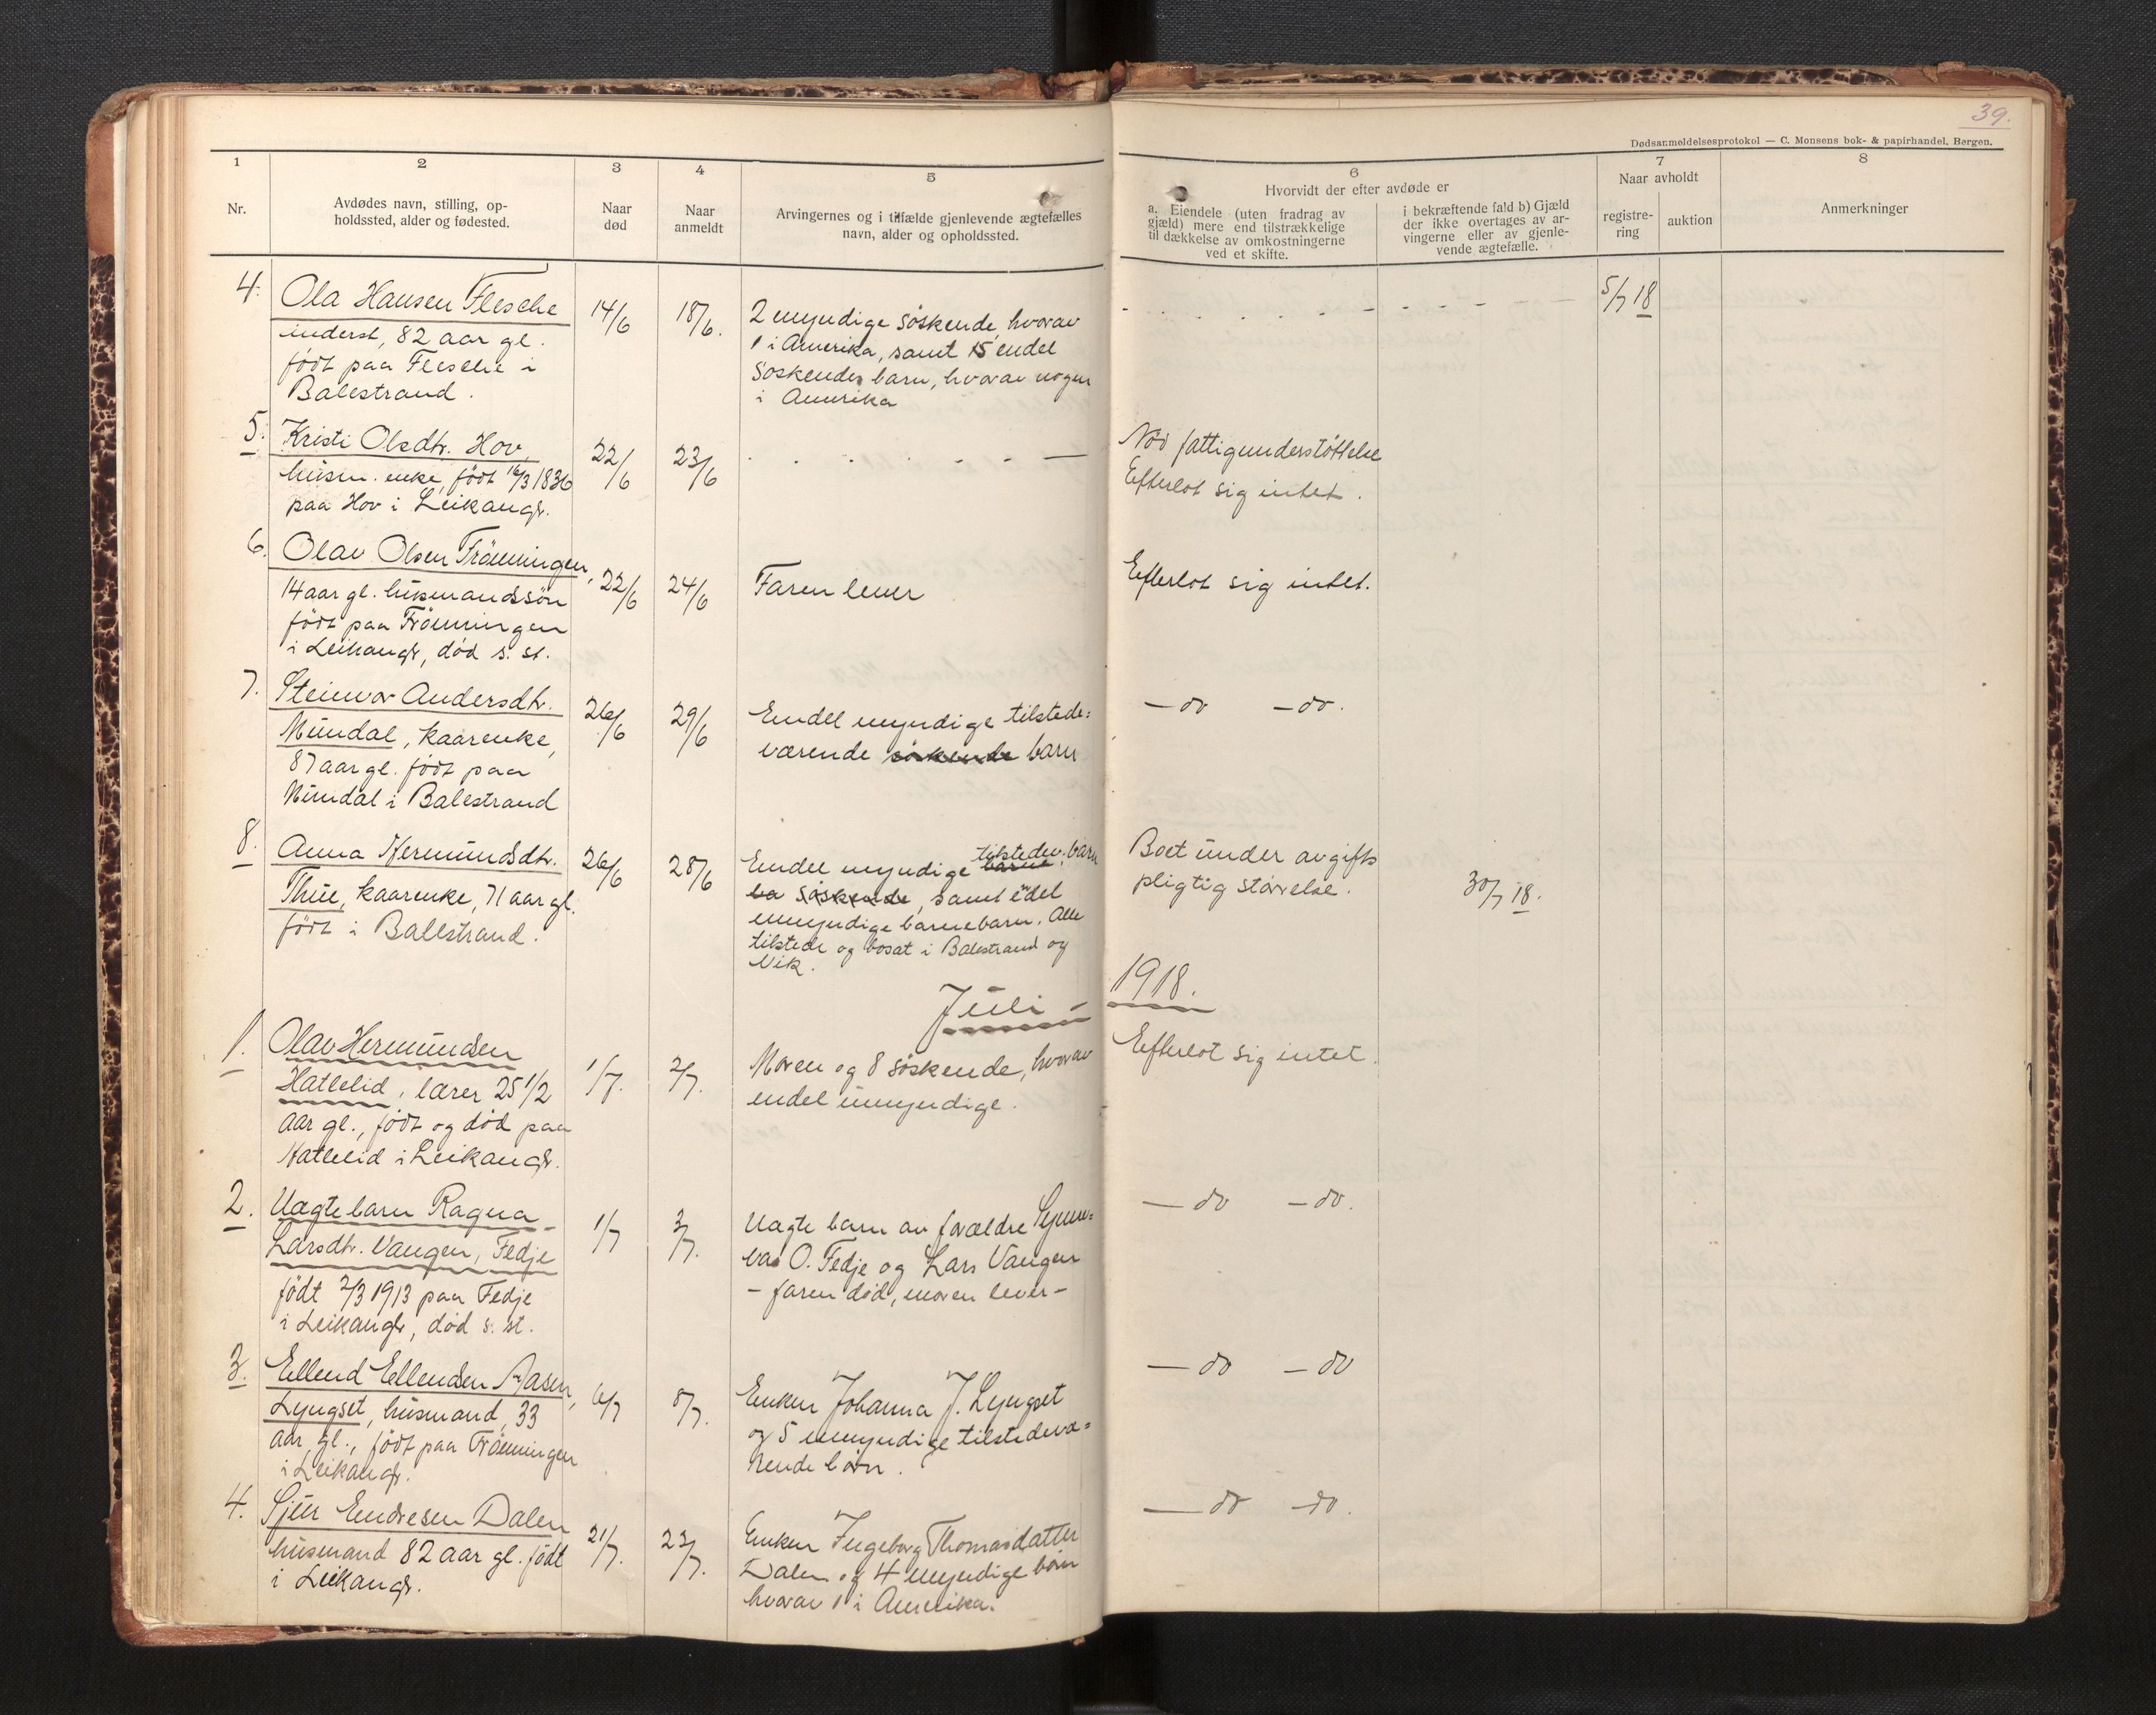 39.
Dødsanmeldelsesprotokol — C. Monsens bok- & papirhandel, Bergen.
1
2
3
4
5
6
7
8
Nr.
Avdødes navn, stilling, op-
holdssted, alder og fødested.
Naar
død
Naar
anmeldt
Arvingernes og i tilfælde gjenlevende ægtefælles
navn, alder og opholdssted.
Hvorvidt der efter avdøde er
a. Eiendele (uten fradrag av
gjæld) mere end tilstrækkelige
til dækkelse av omkostningerne
ved et skifte.
i bekræftende fald b) Gjæld
der ikke overtages av ar-
vingerne eller av gjenle-
vende ægtefælle.
Naar avholdt
registre-
ring
auktion
Anmerkninger
4.
Ola Hansen Flesche
inderst, 82 aar gl.
født paa Flesche i
Balestrand.
14/6
18/6.
2 myndige søskende, hvorav
1 i Amerika, samt 15 endel
søskendes barn, hvorav nogen
i Amerika
5/7 18
5.
Kristi Olsdtr. Hov,
husm. enke, født 16/3 1836
paa Hov i Leikangr.
22/6
23/6
Nöd fattigunderstøttelse
Efterlot sig intet.
6.
Olav Olsen Frönningen,
14 aar gl. husmandssön
født paa Frönningen
i Leikangr, død s. st.
22/6
24/6
Faren lever
Efterlot sig intet.
7.
Steinvor Andersdtr.
Mundal, kaarenke,
87 aar gl. født paa
Mundal i Balestrand
26/6
29/6
Endel myndige tilstede=
værende søskende barn
— do — do.
8.
Anna Hermundsdtr.
Thue, kaarenke, 71 aar gl.
født i Balestrand.
26/6
28/6
tilstedev. barn
Endel myndige barne
ba søskende, samt edel
umyndige barnebarn. Alle
tilstede og bosat i Balestrand og
Vik.
Boet under avgifts
pligtig størrelse.
30/7 18.
Juli - 1918.
1.
Olav Hermundsen
Hatlelid, lærer 25 1/2
aar gl., født og død paa
Hatlelid i Leikangr.
1/7.
2/7.
Moren og 8 søskende, hvorav
endel umyndige.
Efterlot sig intet.
2.
Uægte barn Ragna
Larsdtr. Vangen, Fedje
født 2/3 1913 paa Fedje
i Leikangr, død s. st.
1/7
3/7.
Uægte barn av forældre Synne=
va O. Fedje og Lars Vangen
- faren død, moren lever -
— do — do.
3.
Ellend Ellendsen Aasen,
Lyngset, husmand, 33
aar gl., født paa Frönningen
i Leikangr.
6/7
8/7.
Enken Johanna J. Lyngset
og 5 umyndige tilstedevæ=
rende børn.
— do — do
4.
Sjur Endresen Dalen
husmand 82 aar gl. født
i Leikangr.
21/7.
23/7.
Enken Ingeborg Thomasdatter
Dalen og 4 myndige børn
hvorav 1 i Amerika.
— do — do.